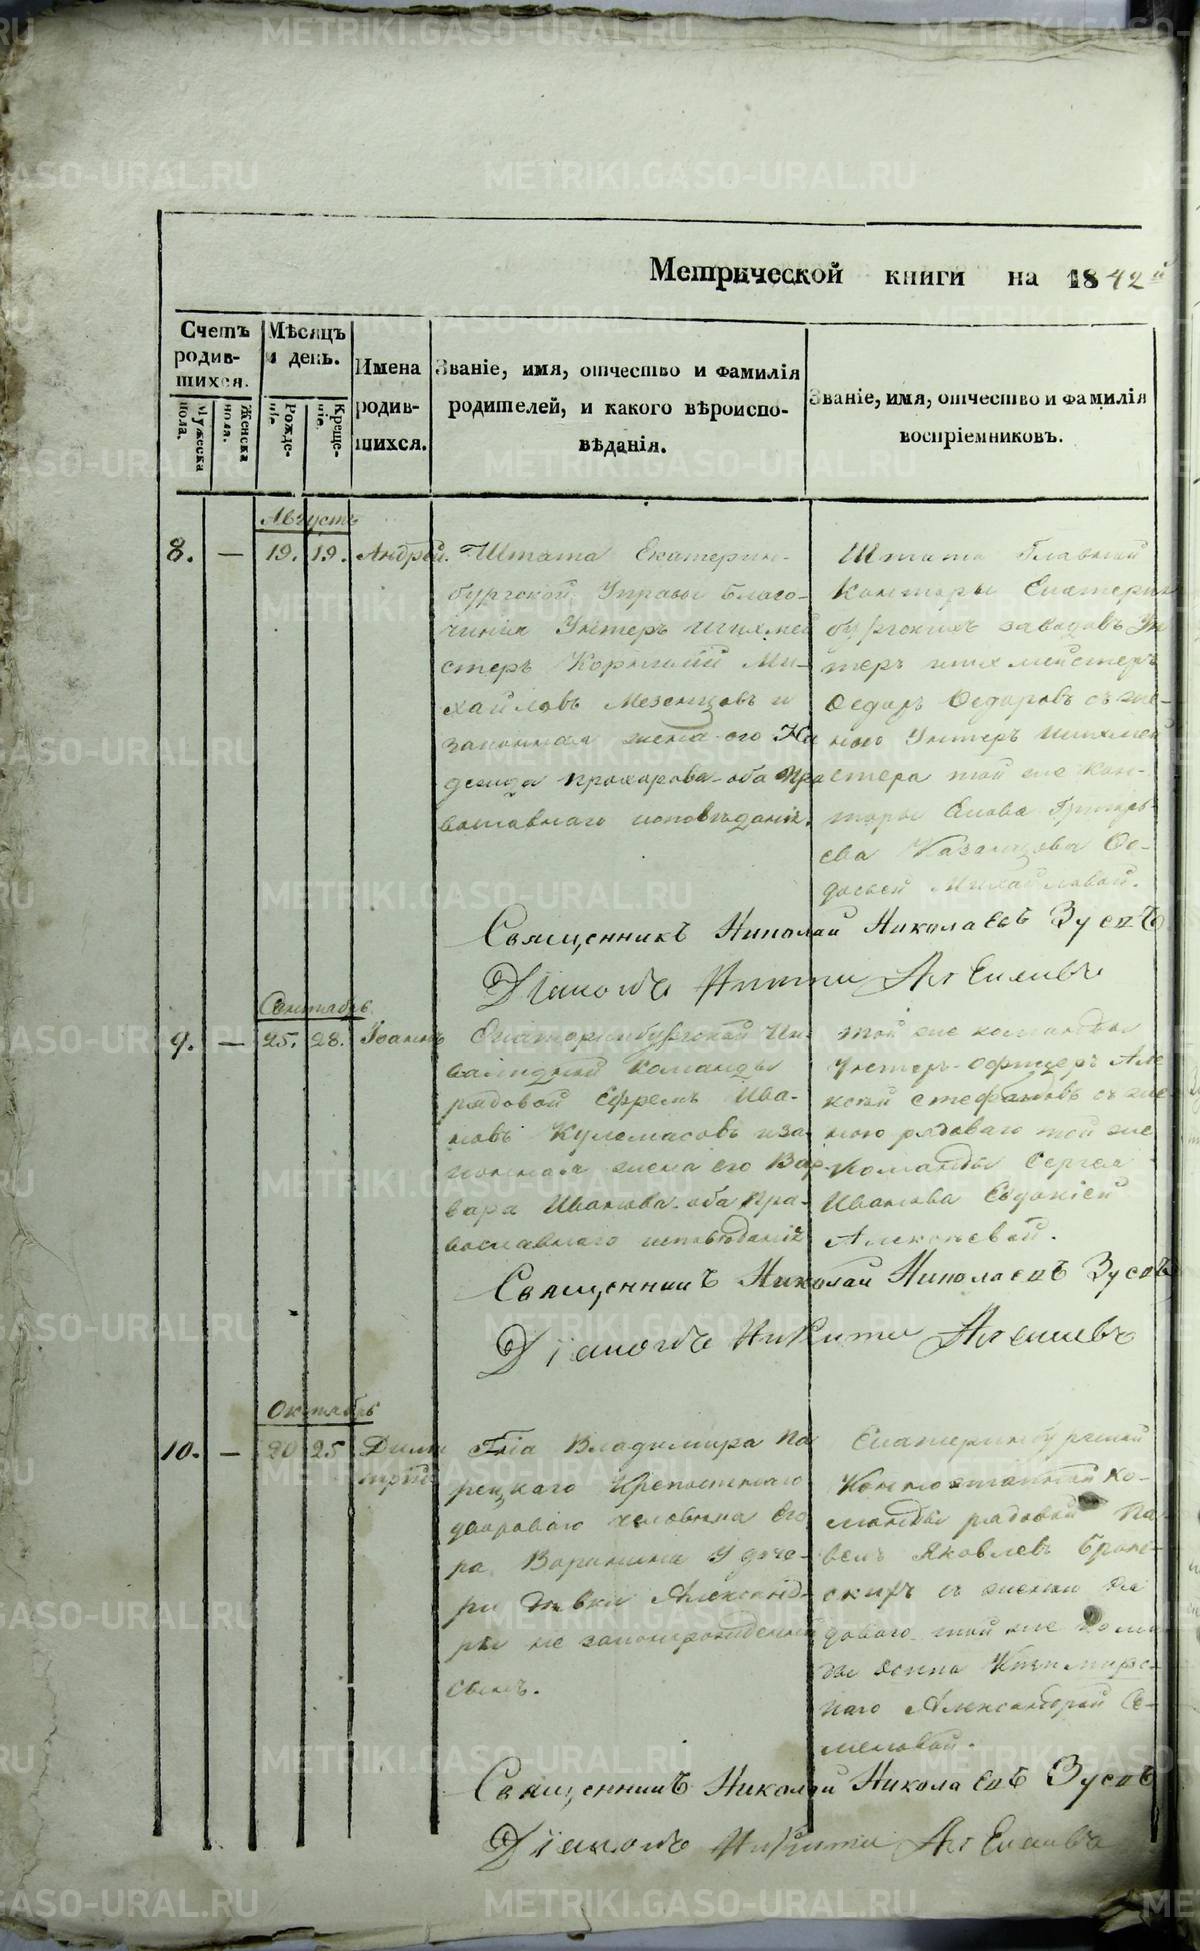 Метрической книги на 1842й
Счетъ родив-шихся.
Мужеска пола.
Женска пола.
Мѣсяцъ и день.
Рожде-нiе.
Креще-нiе.
Имена родив-шихся.
Званiе, имя, отчество и фамилiя
родителей, и какого вѣроиспо-
вѣданiя.
Званiе, имя, отчество и фамилiя
воспрiемниковъ.
Августъ
8. — 19. 19. Андрей.
Штата Екатерин-
бургской Управы благо-
чинiя Унтеръ шихмей
стеръ Корнилiй Ми-
хайловъ Мезенцовъ и
законная жена его На
дежда Прохорова. оба пра
вославнаго исповѣданiя.
Штата Главной
Конторы Екатерин
бургскихъ заводовъ Ун
теръ шихмейстеръ
Ѳедоръ Ѳедоровъ съ же-
ною Унтеръ шихмей
стера той же Кон-
торы Григорь-
ева Казанцова Ѳе-
досьей Михайловой.
Священникъ Николай Николаевъ Зусовъ
Дiаконъ Никита
Сентябрь
9. — 25. 28. Iоаннъ
Екатеринбургской Ин-
валидной Команды
рядовой Ефремъ Ива-
новъ Кулемасовъ и за-
конная жена его Вар-
вара Иванова. оба Пра-
вославнаго исповѣданiя
той же команды
Унтеръ-офицеръ Але
ксѣй Стефановъ съ же
ною рядоваго той же
Команды Сергея
Иванова Евдокiей
Алексѣевой.
Священникъ Николай Николаевъ Зусовъ
Дiаконъ Никита
Октябрь
10. — 20 25 Дими
трiй
Владимира
Крѣпостнаго
двороваго человѣка Его
ра Воронина у доче-
ри дѣвки Александ-
ры не законрожденный
сынъ.
Екатеринбургской
ко-
манды рядовой Па
велъ Яковлевъ
съ женою ря
доваго той же кома
ды осипа
Александрой Се-
меновой.
Священникъ Николай Николаевъ Зусовъ
Дiаконъ Никита